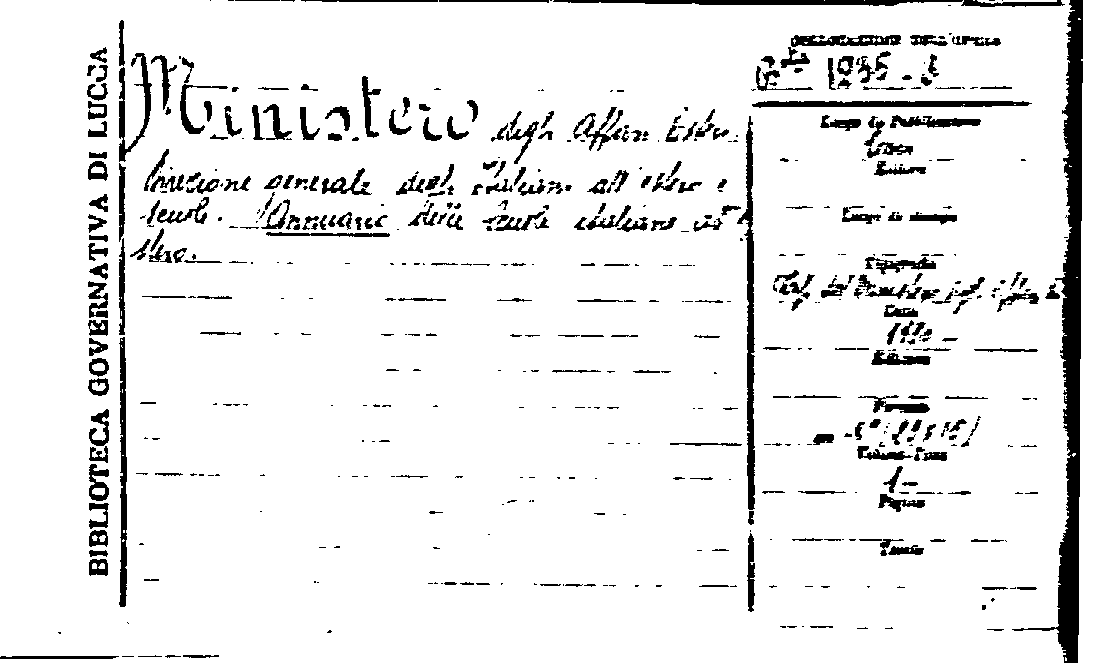 BIBLIOTECA GOVERNATIVA DI LUCCA
Ministero degli Affari Esteri.
Direzione generale degli Italiani all'estero e
scuole. Annuario delle scuole italiane all'e
stero.
COLLOCAZIONE DELL'OPERA
Luogo di Pubblicazione
Roma
Editore
Luogo di stampa
Tipografia
Tip. del Ministero degli Affari E
Data
Edizione
Formato
in -8° (23x16)
Volume-Parte
1-
Pagine
Tavole